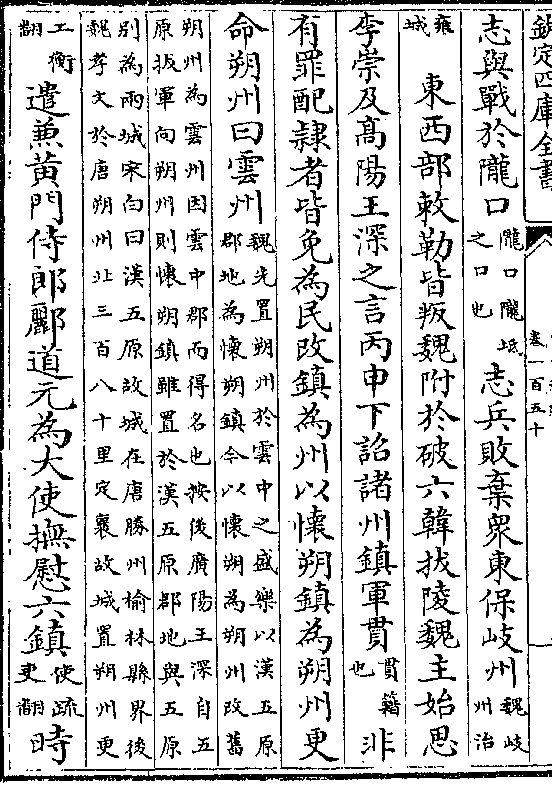 欽定四庫全書
卷一百五十
志與戰於隴口
隴口隴坻
之口也
志兵敗棄衆東保岐州
魏岐
州治
雍
城
東西部敕勒皆叛魏附於破六韓拔陵魏主始思
李崇及髙陽王深之言丙申下詔諸州鎮軍貫
貫籍
也
非
有罪配隷者皆免為民改鎮為州以懷朔鎮為朔州更
命朔州曰雲州
魏先置朔州於雲中之盛樂以漢五原
郡地為懷朔鎮今以懷朔為朔州改舊
朔州為雲州因雲中郡而得名也按後廣陽王深自五
原拔軍向朔州則懷朔鎮雖置於漢五原郡地與五原
别為兩城宋白曰漢五原故城在唐勝州榆林縣界後
魏孝文於唐朔州北三百八十里定襄故城置朔州更
工衡
翻
遣兼黄門侍郎酈道元為大使撫慰六鎮
使疏
吏翻
時